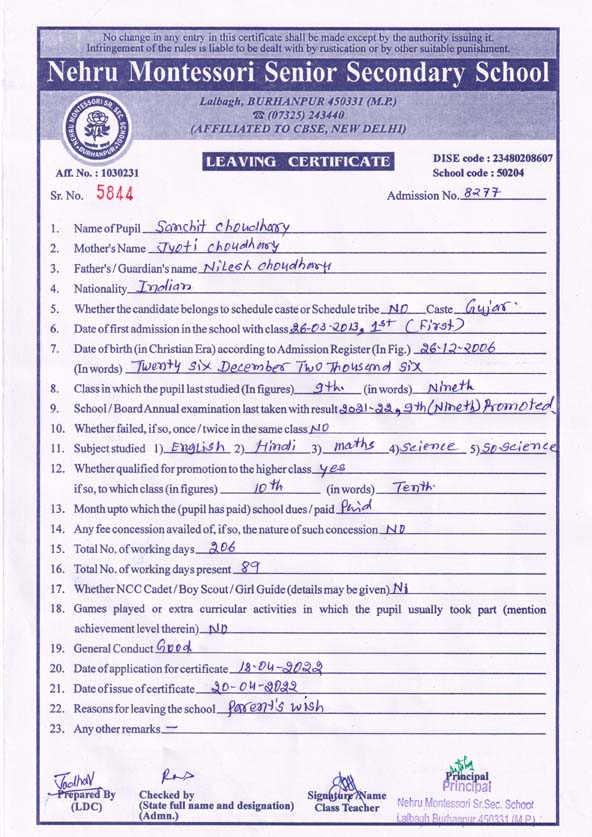 No change in any entry in this certificate shall be made except by the authority issuing it.
Infringement of the rules is liable to be dealt with by rustication or by other suitable punishment.
Nehru Montessori Senior Secondary School
Lalbagh, BURHANPUR 450331 (M.P.)
☎ (07325) 243440
(AFFILIATED TO CBSE, NEW DELHI)
NEHRU MONTESSORI SR. SEC. SCHOOL
BURHANPUR
LEAVING CERTIFICATE
DISE code : 23480208607
Aff. No. : 1030231 School code : 50204
Sr. No. 5844 Admission No. 8277
1. Name of Pupil Sanchit Choudhary
2. Mother's Name Jyoti Choudhary
3. Father's / Guardian's name Nilesh Choudhary
4. Nationality Indian
5. Whether the candidate belongs to schedule caste or Schedule tribe NO Caste Gujar.
6. Date of first admission in the school with class 26-03-2013, 1st (First)
7. Date of birth (in Christian Era) according to Admission Register (In Fig.) 26-12-2006
(In words) Twenty Six December Two Thousand Six
8. Class in which the pupil last studied (In figures) 9th. (in words) Nineth
9. School / Board Annual examination last taken with result 2021-22, 9th (Nineth) Promoted
10. Whether failed, if so, once / twice in the same class NO
11. Subject studied 1) English 2) Hindi 3) maths 4) Science 5) SO Science
12. Whether qualified for promotion to the higher class yes
if so, to which class (in figures) 10th (in words) Tenth.
13. Month upto which the (pupil has paid) school dues / paid Paid
14. Any fee concession availed of, if so, the nature of such concession NO
15. Total No. of working days 206
16. Total No. of working days present 89
17. Whether NCC Cadet / Boy Scout / Girl Guide (details may be given) Ni
18. Games played or extra curricular activities in which the pupil usually took part (mention
achievement level therein) NO
19. General Conduct Good
20. Date of application for certificate 18-04-2022
21. Date of issue of certificate 20-04-2022
22. Reasons for leaving the school Parent's wish
23. Any other remarks —
Jadhav
Prepared By
(LDC)
Checked by
(State full name and designation)
(Admn.)
Signature/Name
Class Teacher
Principal
Principal
Nehru Montessori Sr.Sec. School
Lalbagh Burhanpur 450331 (M.P.)